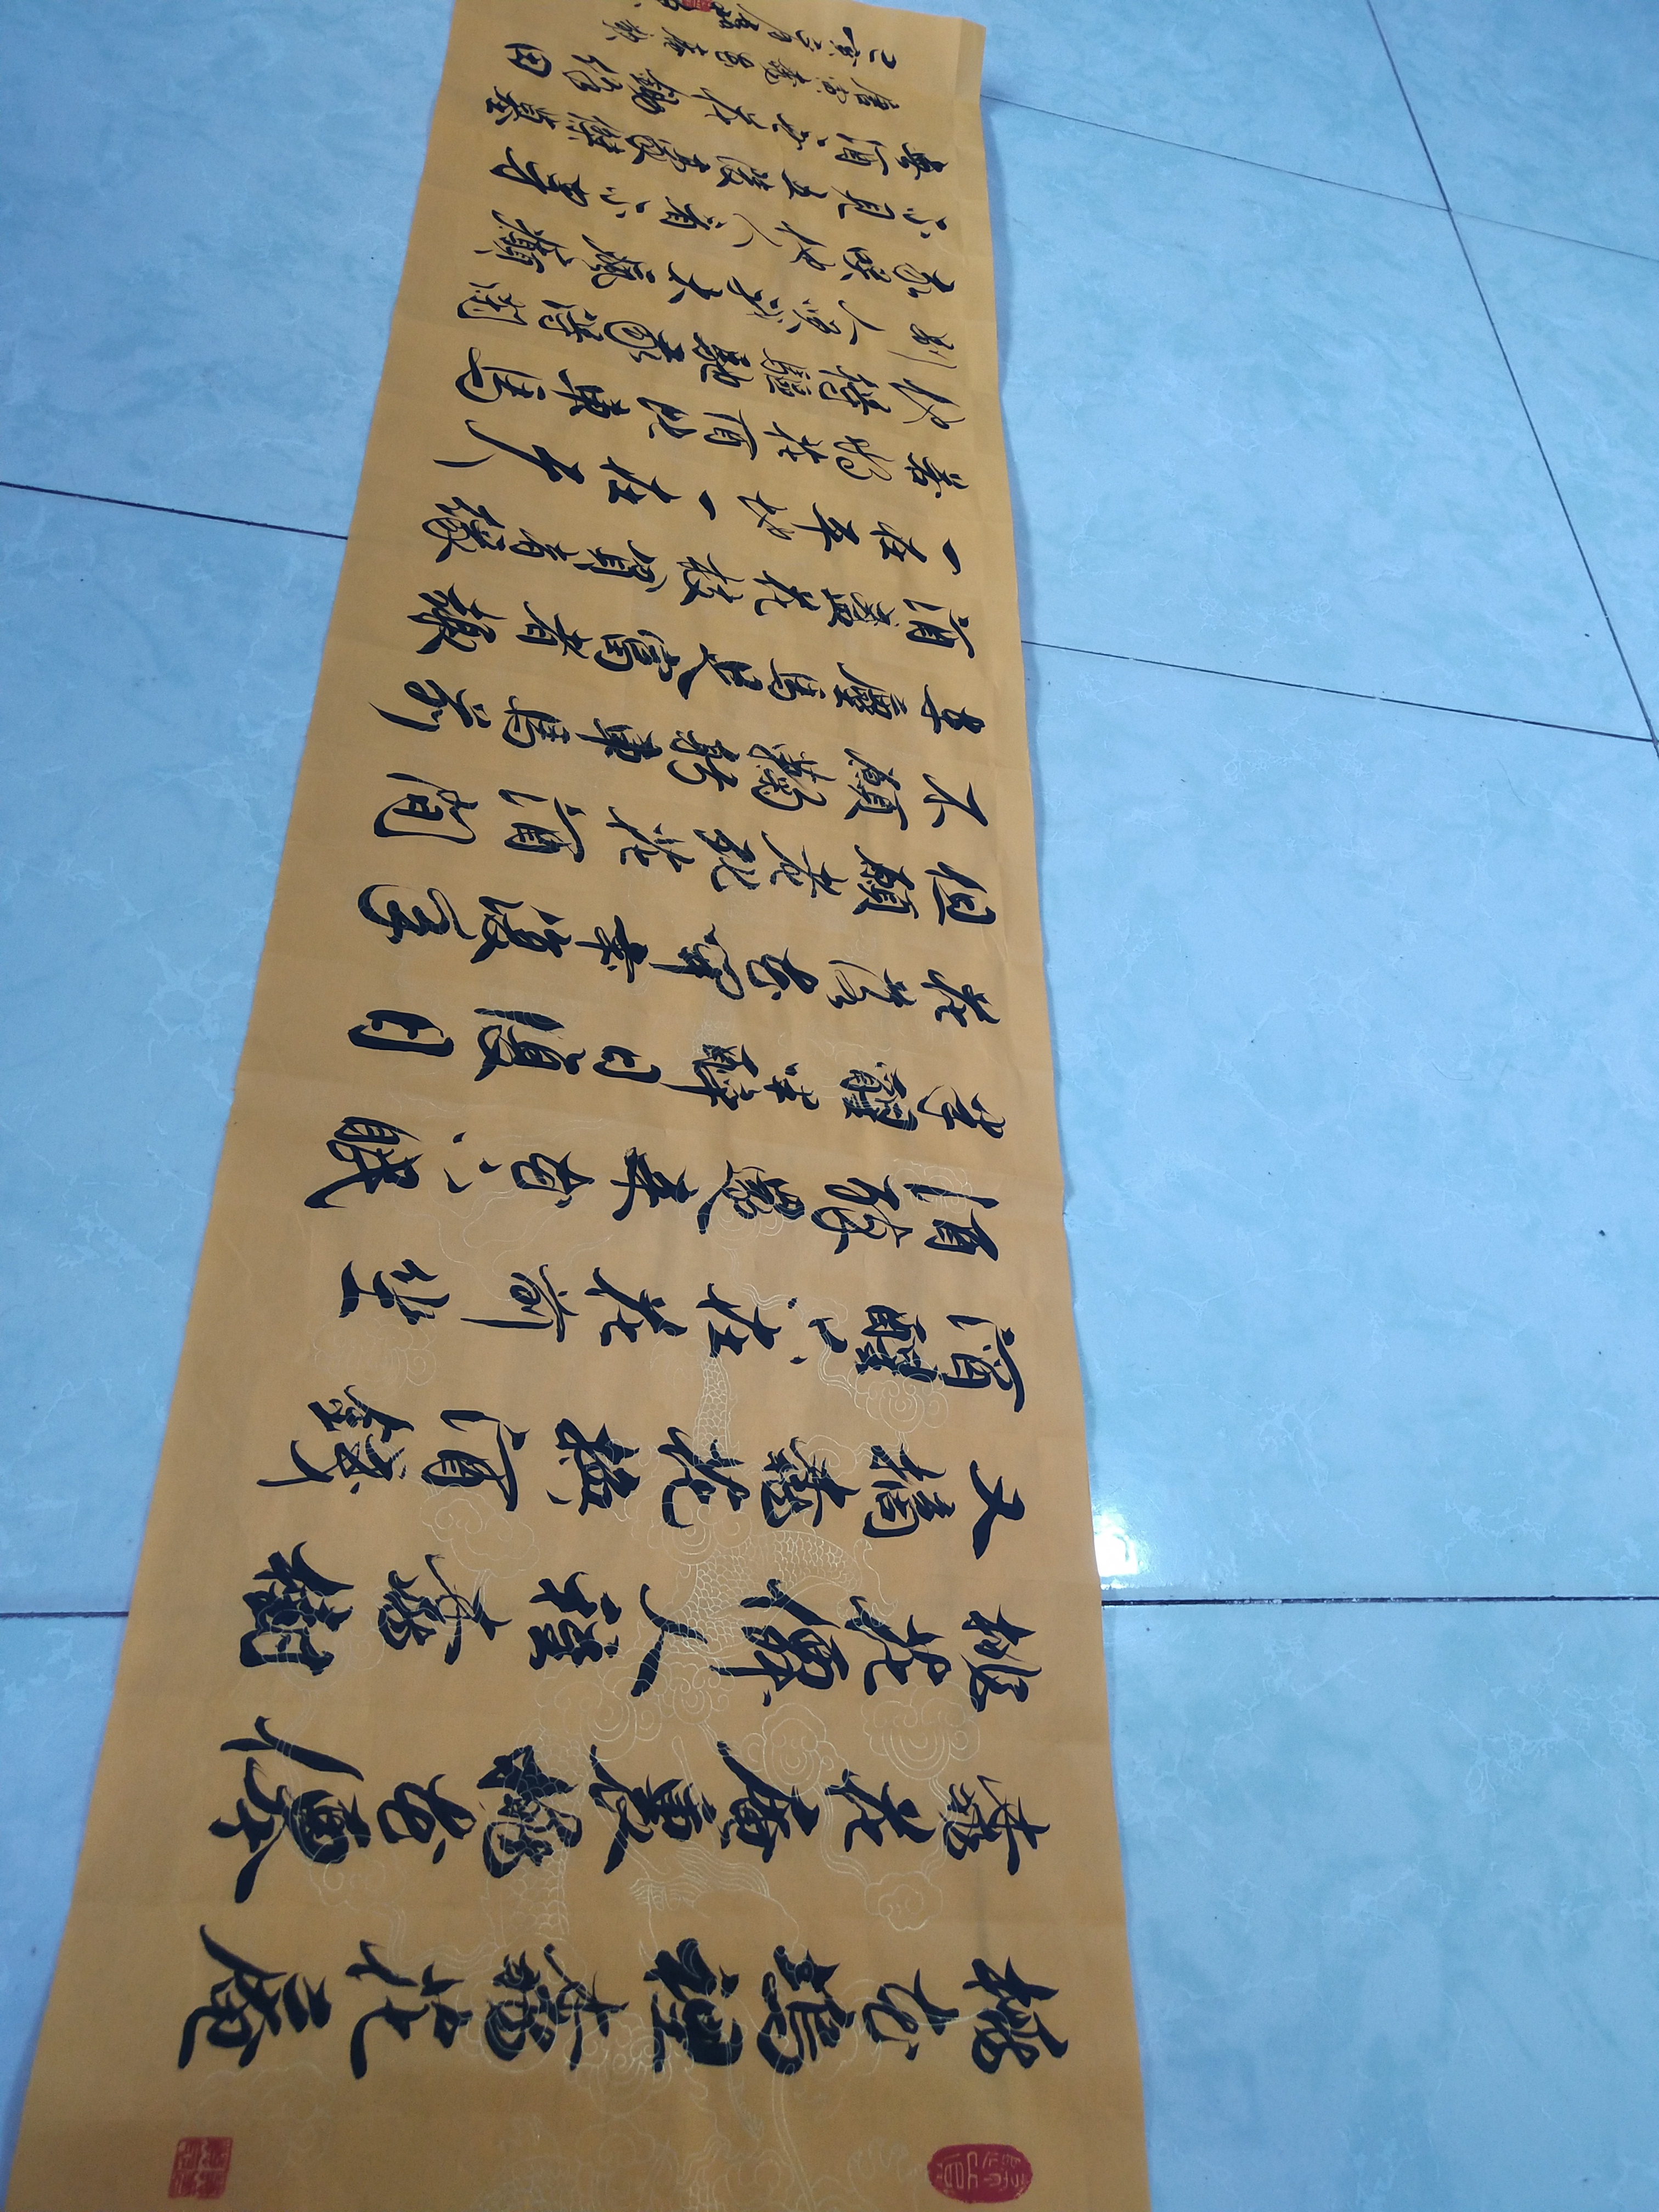 桃花塢裡桃花庵
桃花庵裏桃花僊
桃花僊人種桃樹
又摘桃花換酒錢
酒醒只在花前坐
酒醉還來花下眠
半醒半醉日復日
花落花開年復年
但願老死花酒間
不願鞠躬車馬前
車塵馬足富者趣
酒盞花枝貧者緣
一在平地一在天
若將花酒比車馬
他得驅馳我得閒
別人笑我太瘋癲
我笑他人看不穿
不見五陵豪傑墓
無酒無花鋤作田
唐寅桃花庵歌
己亥